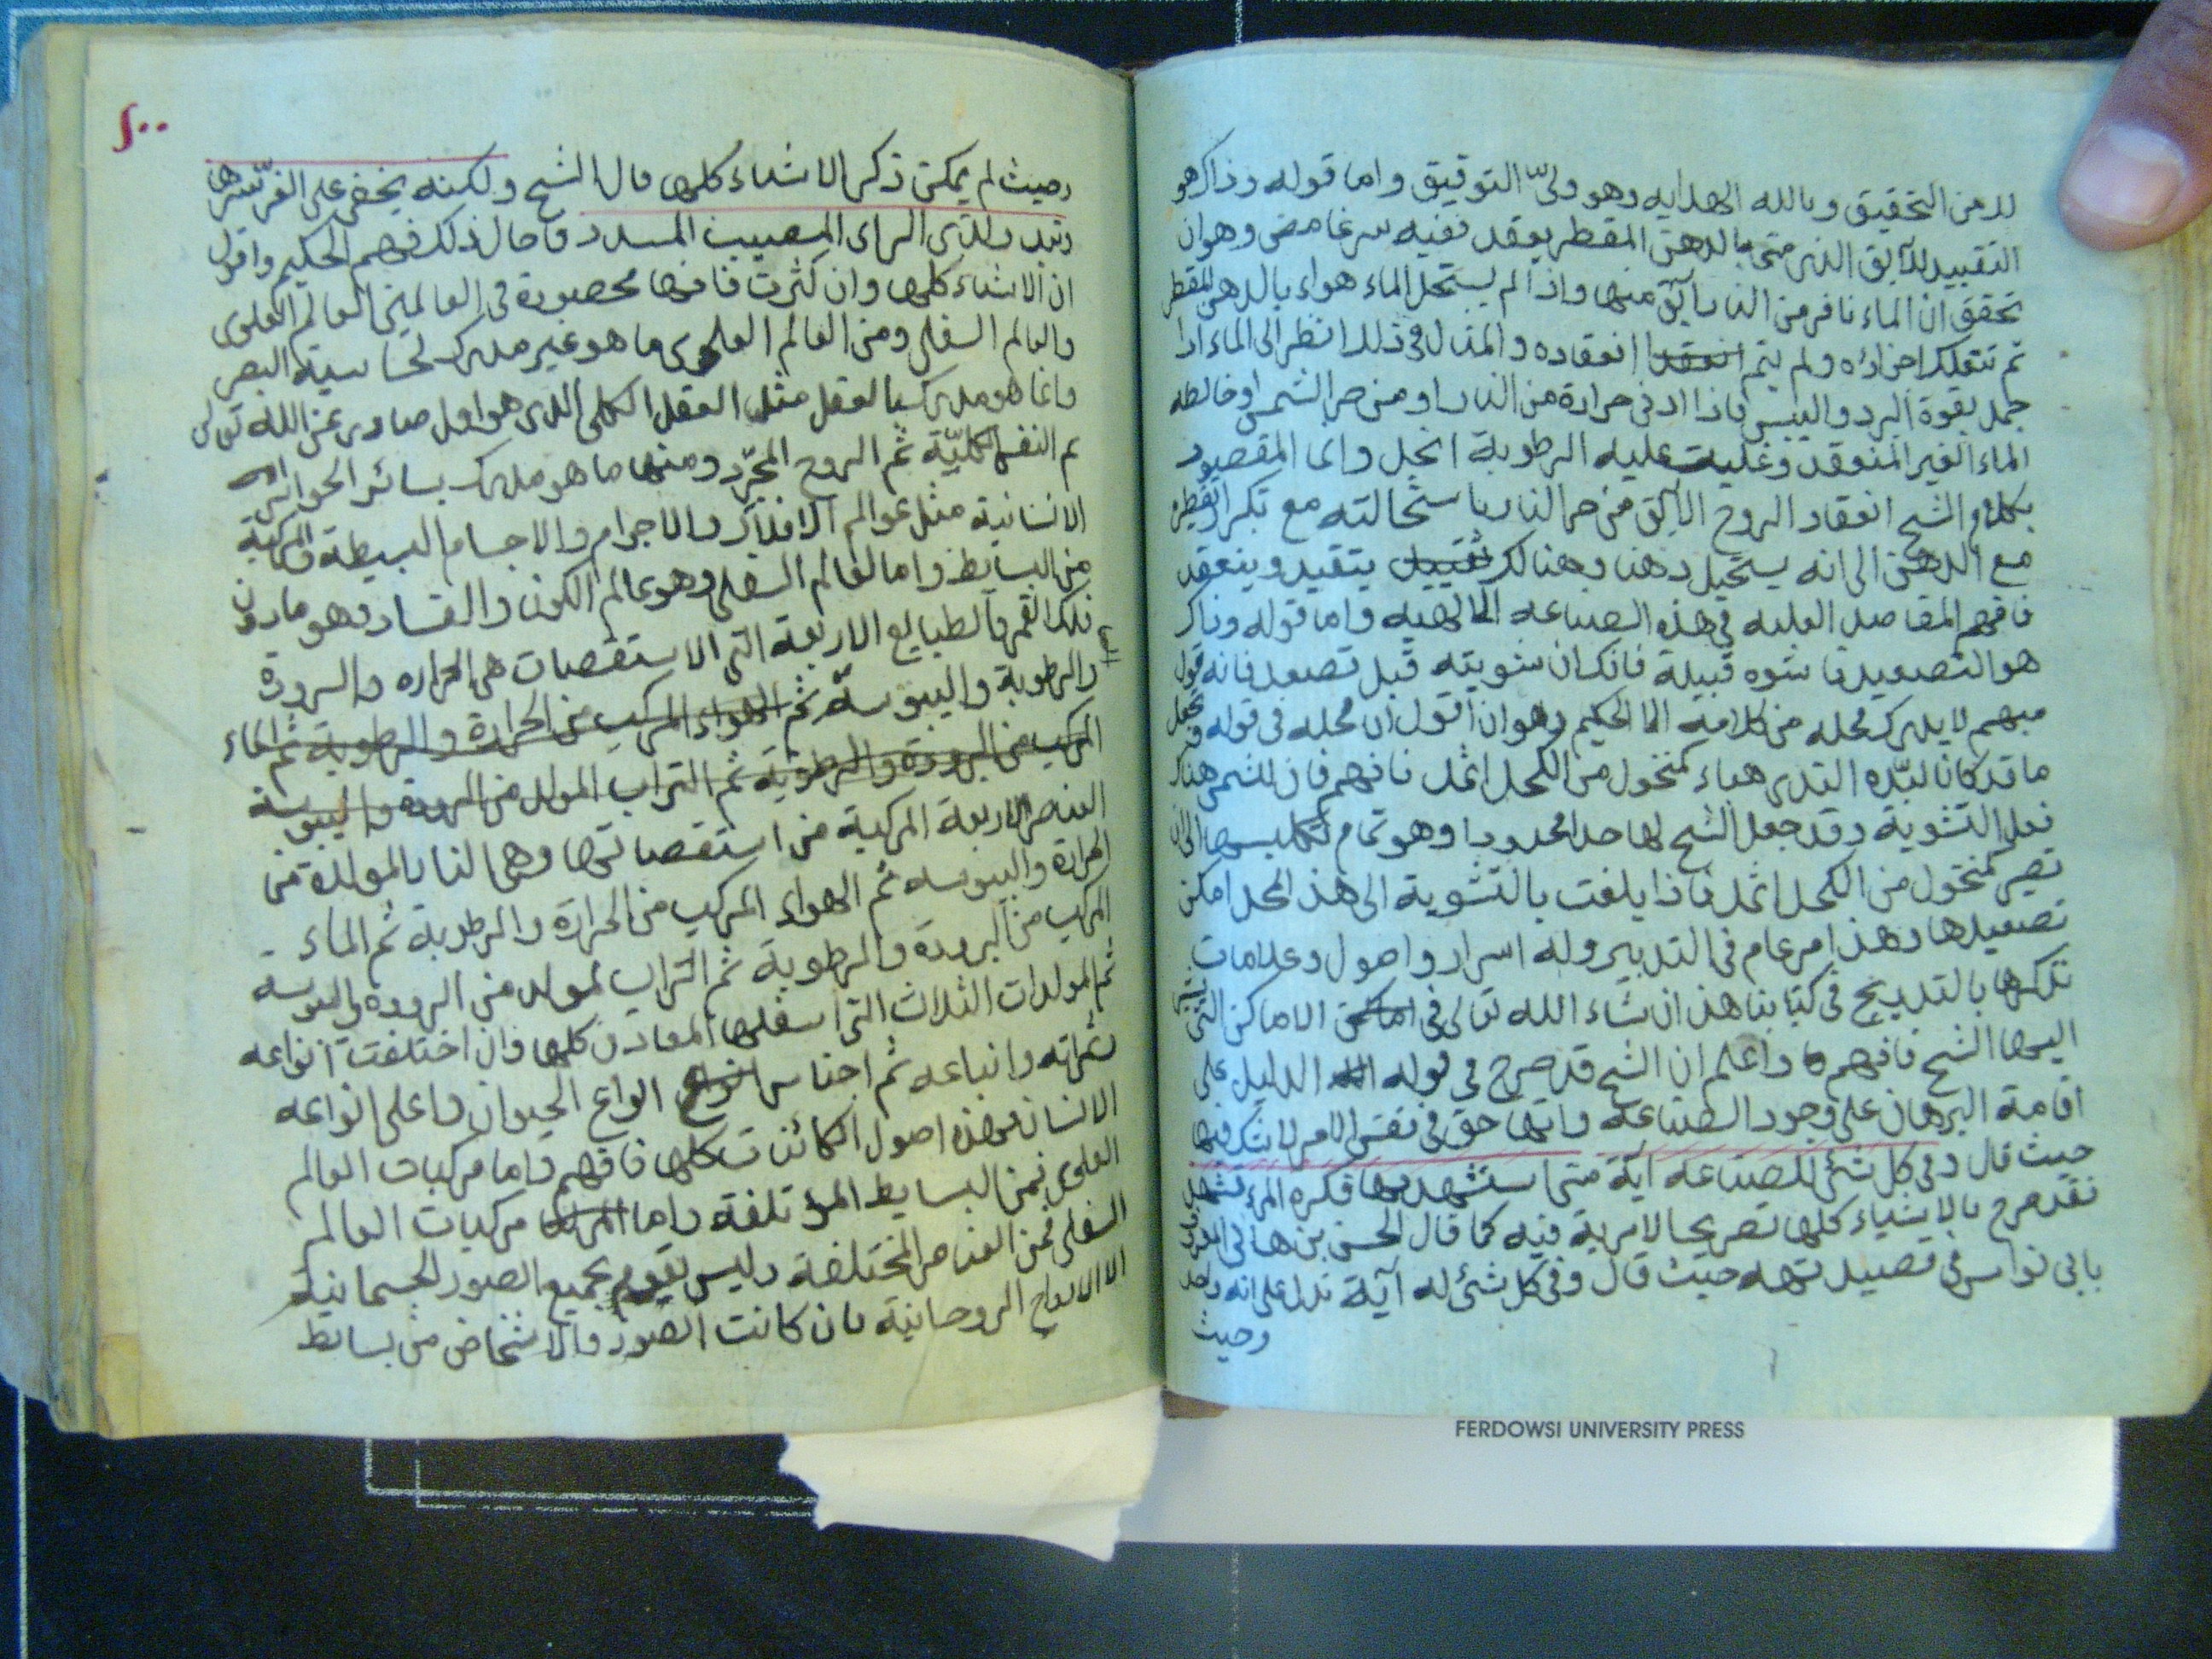 لد من التحقيق وبالله الهدايه وهو ولىّ التوفيق واما قوله وذاكر هو
التقييد للآبق الذى متى بالدهن المقطر يعقد ففيه سر غامض وهو ان
تحقق ان الماء نافر من النار آبق منها واذا لم يستحل الماء هواء بالدهن المقطر
ثم اجزائه ولم يتم انعقاده والمثال فى ذلك انظر الى الماء اذا
جمد بقوة البرد واليبس فاذا ادنى حرارة من النار او من حر الشمس او خالطه
الماء الغير المنعقد وغلبت عليه الرطوبة انحل وانما المقصود
بكلام الشيخ انعقاد الروح الآبق من حر النار باستحالته مع تكرار تقطيره
مع الدهن الى انه يستحيل دهنا وهنالك يتقيد وينعقد
فافهم المقاصد العليه فى هذه الصناعه الالهيه واما قوله وذاكر
هو التصعيد فاشوه قبيله فانك ان شويته قبل تصعد فانه قول
مبهم لا يدرك محله من كلامه الا الحكيم وهو ان اقول ان محله فى قوله
ما قد كان لبّده الندى هباء كمنخول من الكحل اثمد فافهم فان للشمس هناك
فعل التشوية وقد جعل الشيخ لها حدا محدودا وهو تمام تكليسها الى ان
تصير كمنخول من الكحل اثمد فاذا بلغت بالتشوية الى هذا المحل امكن
تصعيدها وهذا امر عام فى التدبير وله اسرار واصول وعلامات
نذكرها بالتدريج فى كتابنا هذا ان شاء الله تعالى فى الاماكن التى
اليها الشيخ فافهم واعلم ان الشيخ قد صرح فى قوله الدليل على
اقامة البرهان على وجود الصناعة وانها حق فى نفس الامر لا شك فيها
حيث قال وفى كل شئ للصناعه آية متى استشهد بها فكره المرء تشهد
فقد صرح بالاشياء كلها تصريحا لا مرية فيه كما قال الحسن بن هانى المعروف
بابى نواس فى قصيدته حيث قال وفى كل شئ له آية تدل على انه واحد
وحيث
٢٠٠
وحيث لم يمكن ذكر الاشياء كلها قال الشيخ ولكنه يخفى على الغرّ سرها
وتبد ولذى الراى المصيب المسدد قال ذلك فهم الحكيم واقول
ان الاشياء كلها وان كثرت فانها محصورة فى العالمين العالم العلوى
والعالم السفلى ومن العالم العلوى ما هو غير مدرك لحاسية البصر
وانما هو مدرك بالعقل مثل العقل الكلى الذى هو اول صادر عن الله تعالى
ثم النفس الكليّة ثم الروح المجرّد ومنها ما هو مدرك بسائر الحواس
الانسانية مثل عوالم الافلاك والاجرام والاجسام البسيطة والمركبة
من البسايط واما العالم السفلى وهو عالم الكون والفساد وهو ما دون
فلك القمر فالطبايع الاربعة التى الاستقصات هى الحراره والبرودة
والرطوبة واليبوسة ثم الهواء المركب من الحرارة والرطوبة ثم الماء
المركب من البرودة والرطوبة ثم التراب المولد من البرودة واليبوسة
العناصر الاربعة المركبة من استقصاتها وهى النار المولدة من
الحرارة واليبوسه ثم الهواء المركب من الحرارة والرطوبة ثم الماء
المركب من البرودة والرطوبة ثم التراب المولد من البرودة واليبوسة
ثم المولدات الثلاث التى اسفلها المعادن كلها وان اختلفت انواعه
ثم اجناس انواع الحيوان واعلى انواعه
الانسان فهذه اصول الكائنات كلها فافهم واما مركبات العالم
العلوى فمن البسايط المؤتلفة واما مركبات العالم
السفلى فمن العناصر المختلفة وليس يقوم بجميع الصور الجسمانية
الا الارواح الروحانية فان كانت الصور والاشخاص من بسائط
FERDOWSI UNIVERSITY PRESS